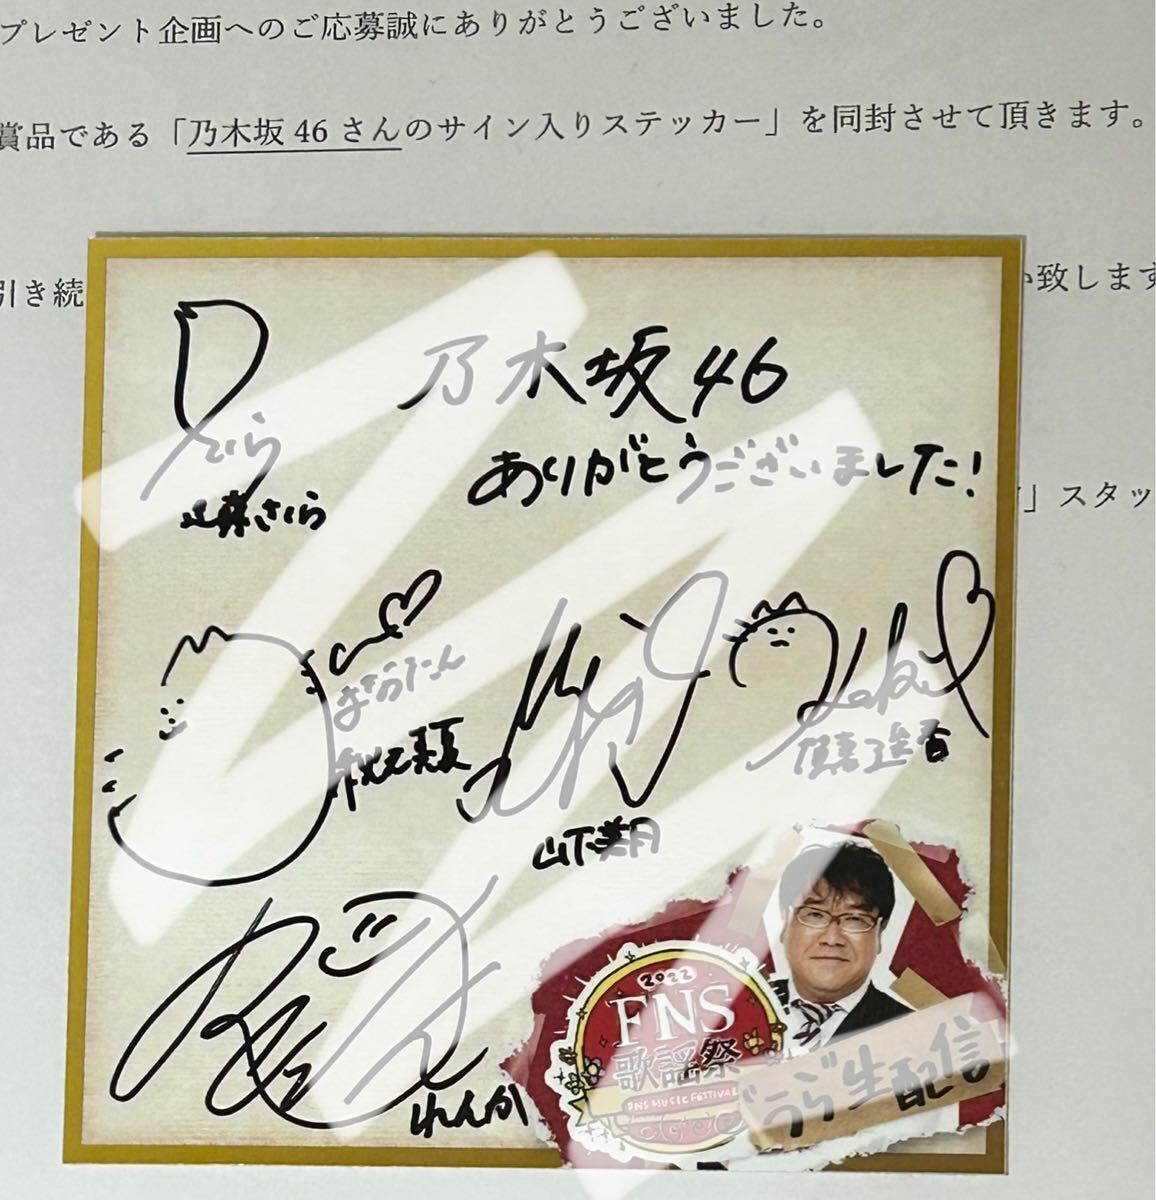 プレゼント企画へのご応募誠にありがとうございました。
賞品である「乃木坂46さんのサイン入りステッカー」を同封させて頂きます。
引き続
い致します
」スタッ
乃木坂46
ありがとうございました!
さくら
遠藤さくら
まなったん
秋元真夏
山下美月
賀喜遥香
れんか
2022
FNS
歌謡祭
FNS MUSIC FESTIVAL
うら生配信